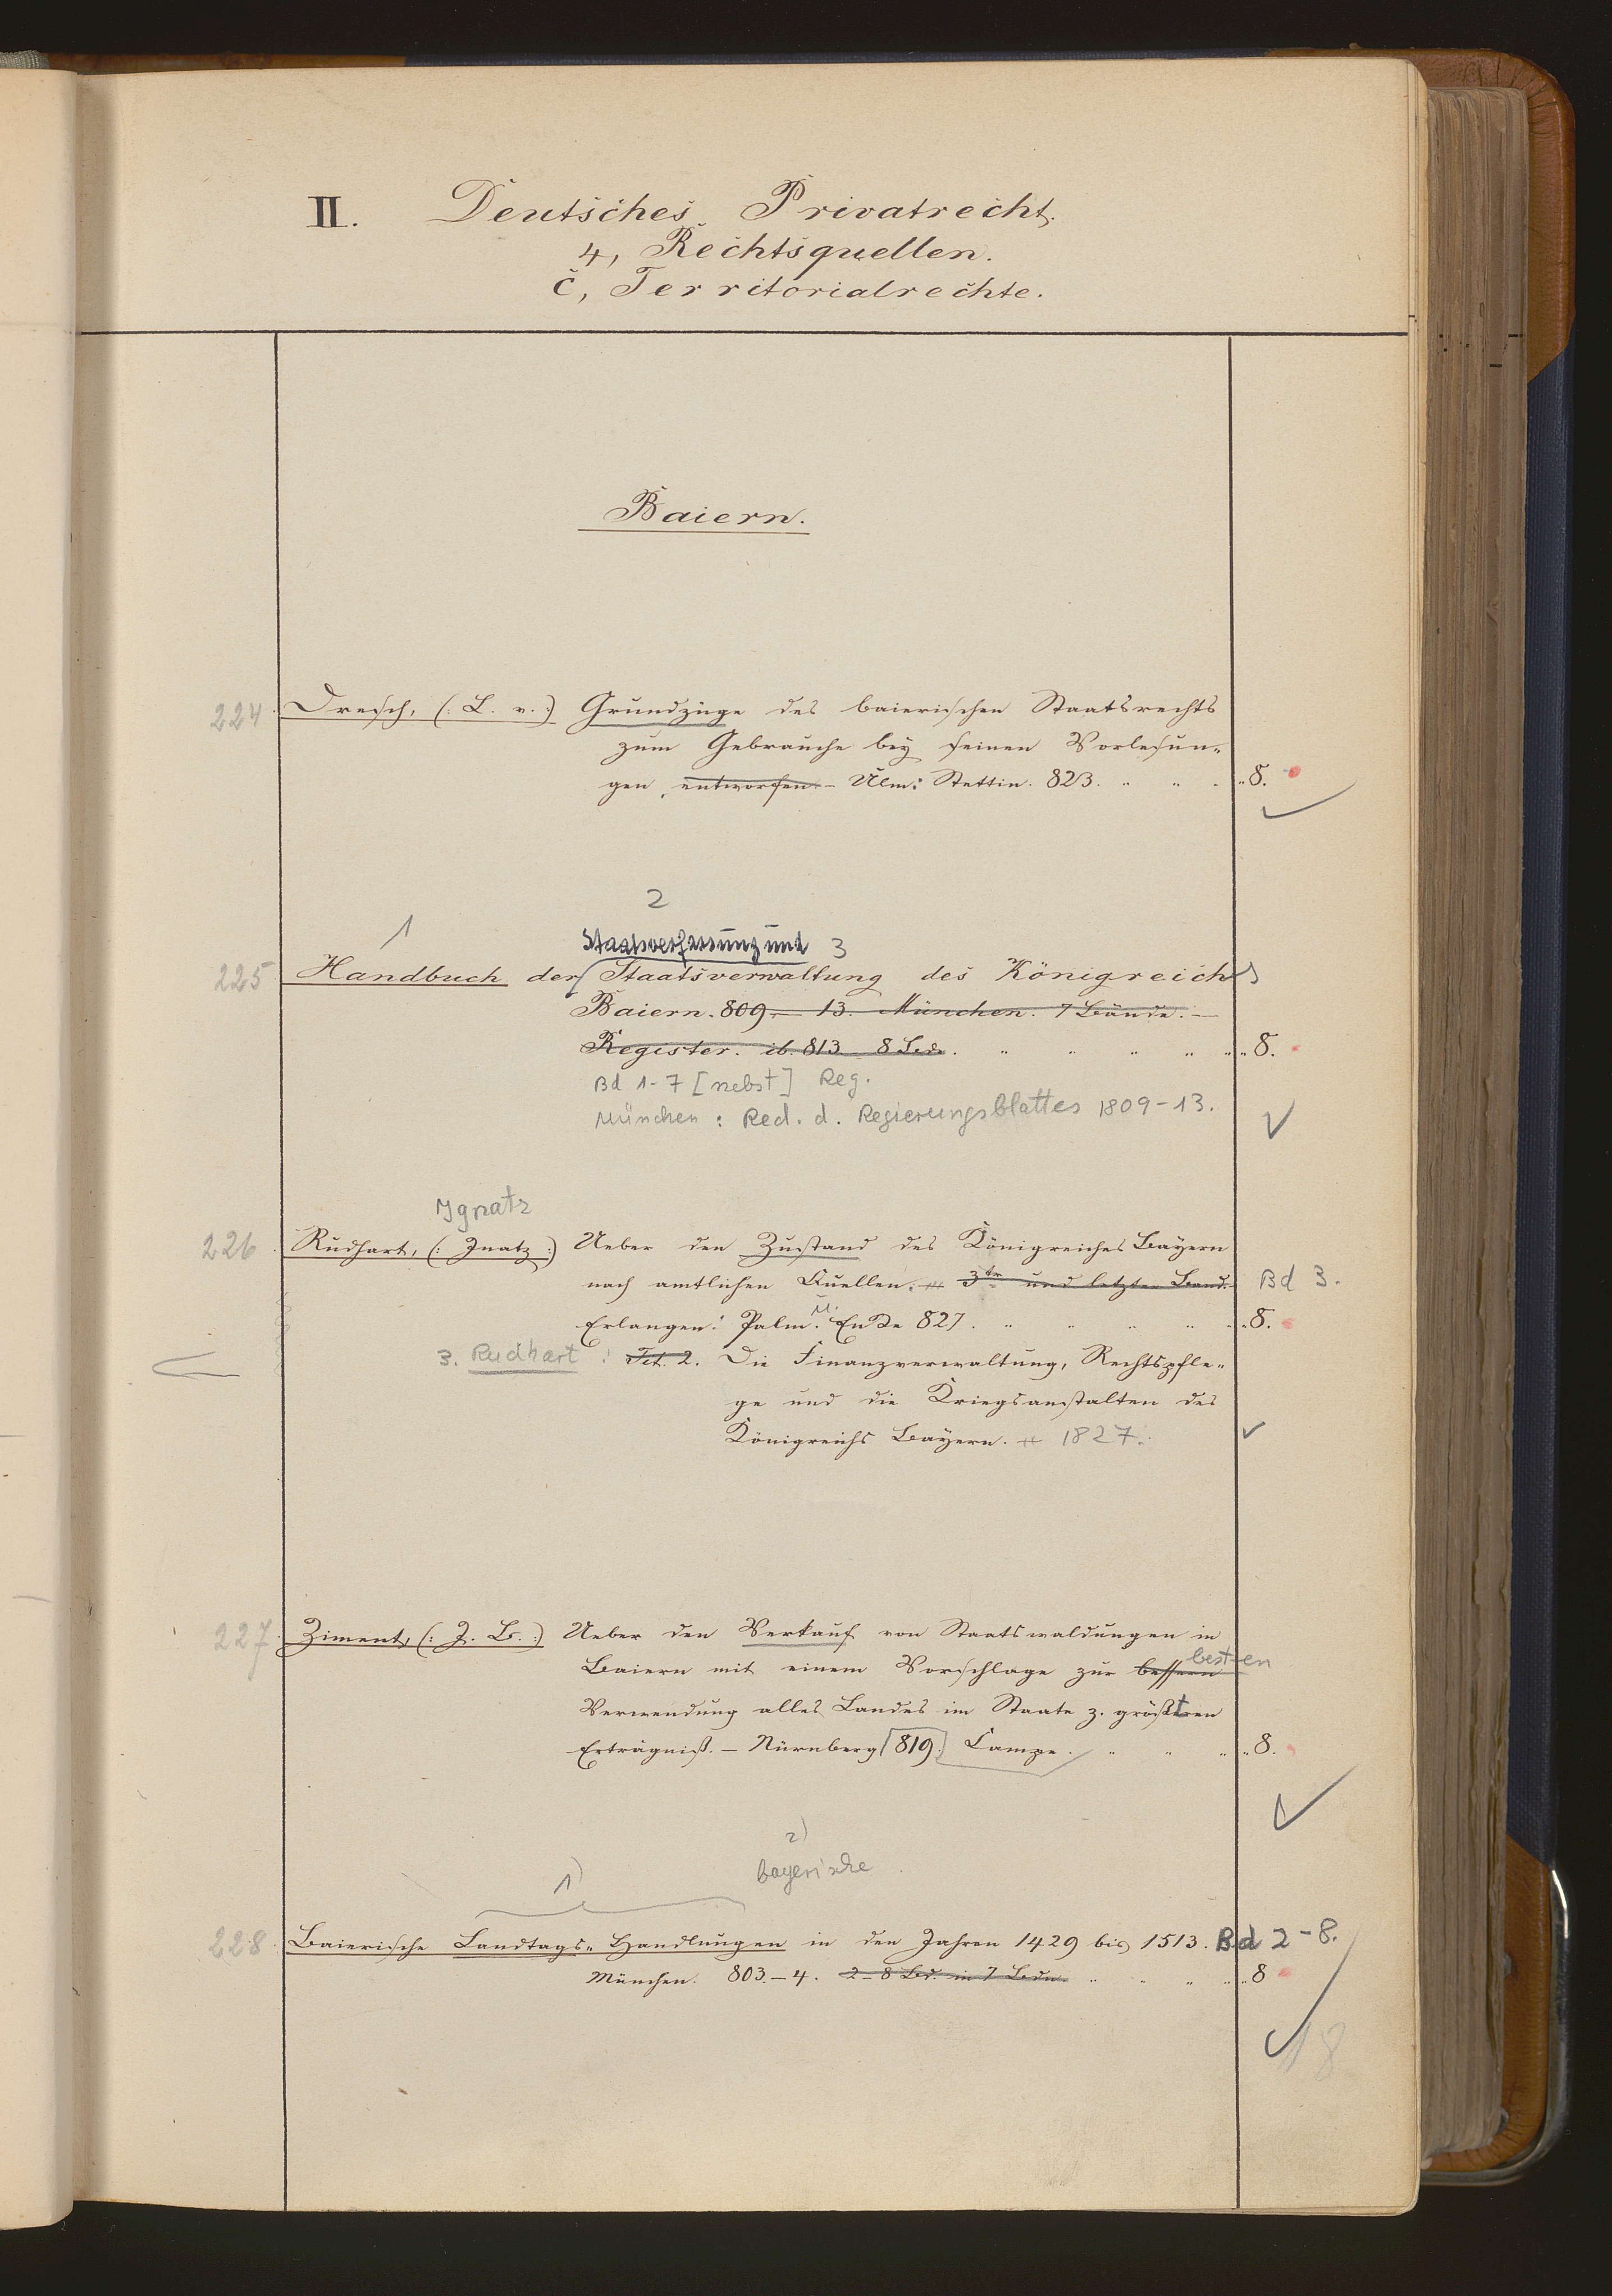 II. Deutsches Privatrecht.
4, Rechtsquellen.
c, Territorialrechte.
Baiern.
224 Dresch, (: L. v. :) Grundzüge des baierischen Staatsrechts
zum Gebrauche bey seinen Vorlesun-
gen, entworfen. - Ulm: Stettin. 823. " " " " 8.
2
1 Staatsverfassung und 3
225 Handbuch der Staatsverwaltung des Königreichs
Baiern. 809. - 13. München. 7 Bände. -
Register. ib. 813 8 Bde. " " " " " " 8.
Bd 1-7 [nebst] Reg.
München: Red. d. Regierungsblattes 1809-13.
Ignatz
226 Rudhart, (: Inatz :) Ueber den Zustand des Königreiches Bayern
nach amtlichen Quellen. 3ter und letzter Band. Bd 3.
Erlangen: Palm. u. Enke 827. " " " " " 8.
3. Rudhart: Tit. 2. Die Finanzverwaltung, Rechtspfle-
ge und die Kriegsanstalten des
Königreichs Bayern. 1827.
227 Ziment, (: J. B. :) Ueber den Verkauf von Staatswaldungen in
Baiern mit einem Vorschlage zur bessern besten
Verwendung alles Landes im Staate z. größten
Erträgniß. - Nürnberg 819. Campe. " " " " 8.
2)
1) bayerische
228 Baierische Landtags- Handlungen in den Jahren 1429 bis 1513. Bd 2-8.
München. 803. - 4. 2 - 8 Bd. in 7 Bdn. " " " " 8
18